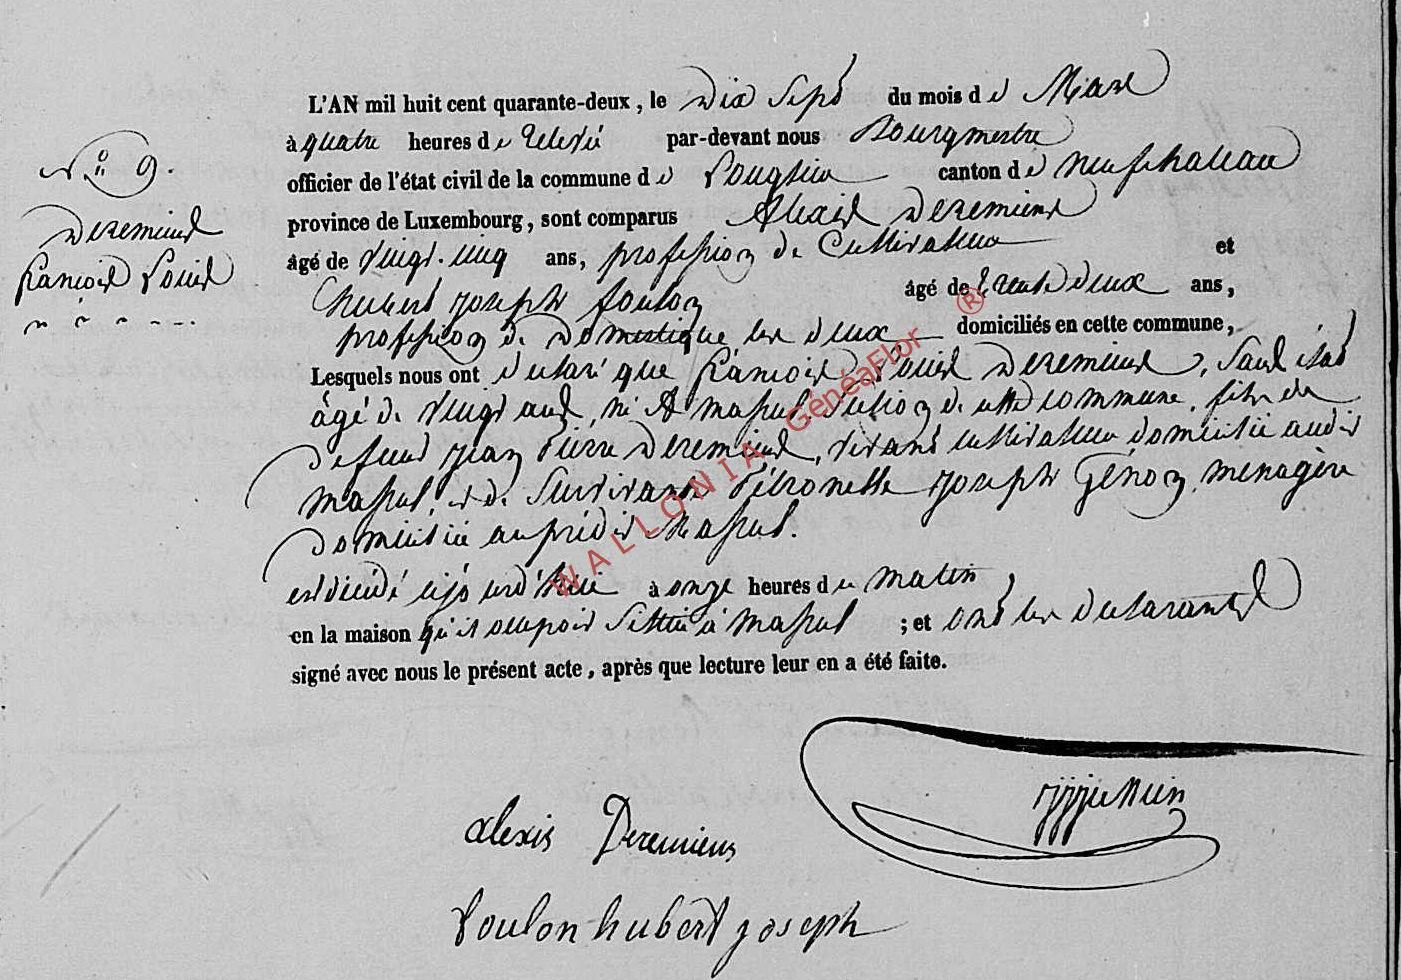 L'AN mil huit cent quarante-deux, le dix sept du mois de Mars
à quatre heures de relevé par-devant nous Bourgmestre
officier de l'état civil de la commune de Longlier canton de neufchateau
province de Luxembourg, sont comparus Alexis Deremiens
âgé de vingt-cinq ans, profession de Cultivateur et
hubert joseph foulon âgé de trente deux ans,
profession de domestique les deux domiciliés en cette commune,
Lesquels nous ont déclaré que françois Louis Deremiens, sans état
âgé de vingt ans, né à massul section de cette commune. fils de
defunt jean Pierre Deremiens, vivant cultivateur domicilié audit
massul, et de survivante Pétronelle joseph Génon, menagère
domiciliée au prédit Massul.
est décédé cejourd'hui à onze heures du matin,
en la maison qu'il occupoit sittué à massul ; et ont les déclarants
signé avec nous le présent acte, après que lecture leur en a été faite.
N.° 9.
Deremiens
françois Louis
alexis Deremiens
foulon hubert joseph
WALLONIA GénéaFlor ®